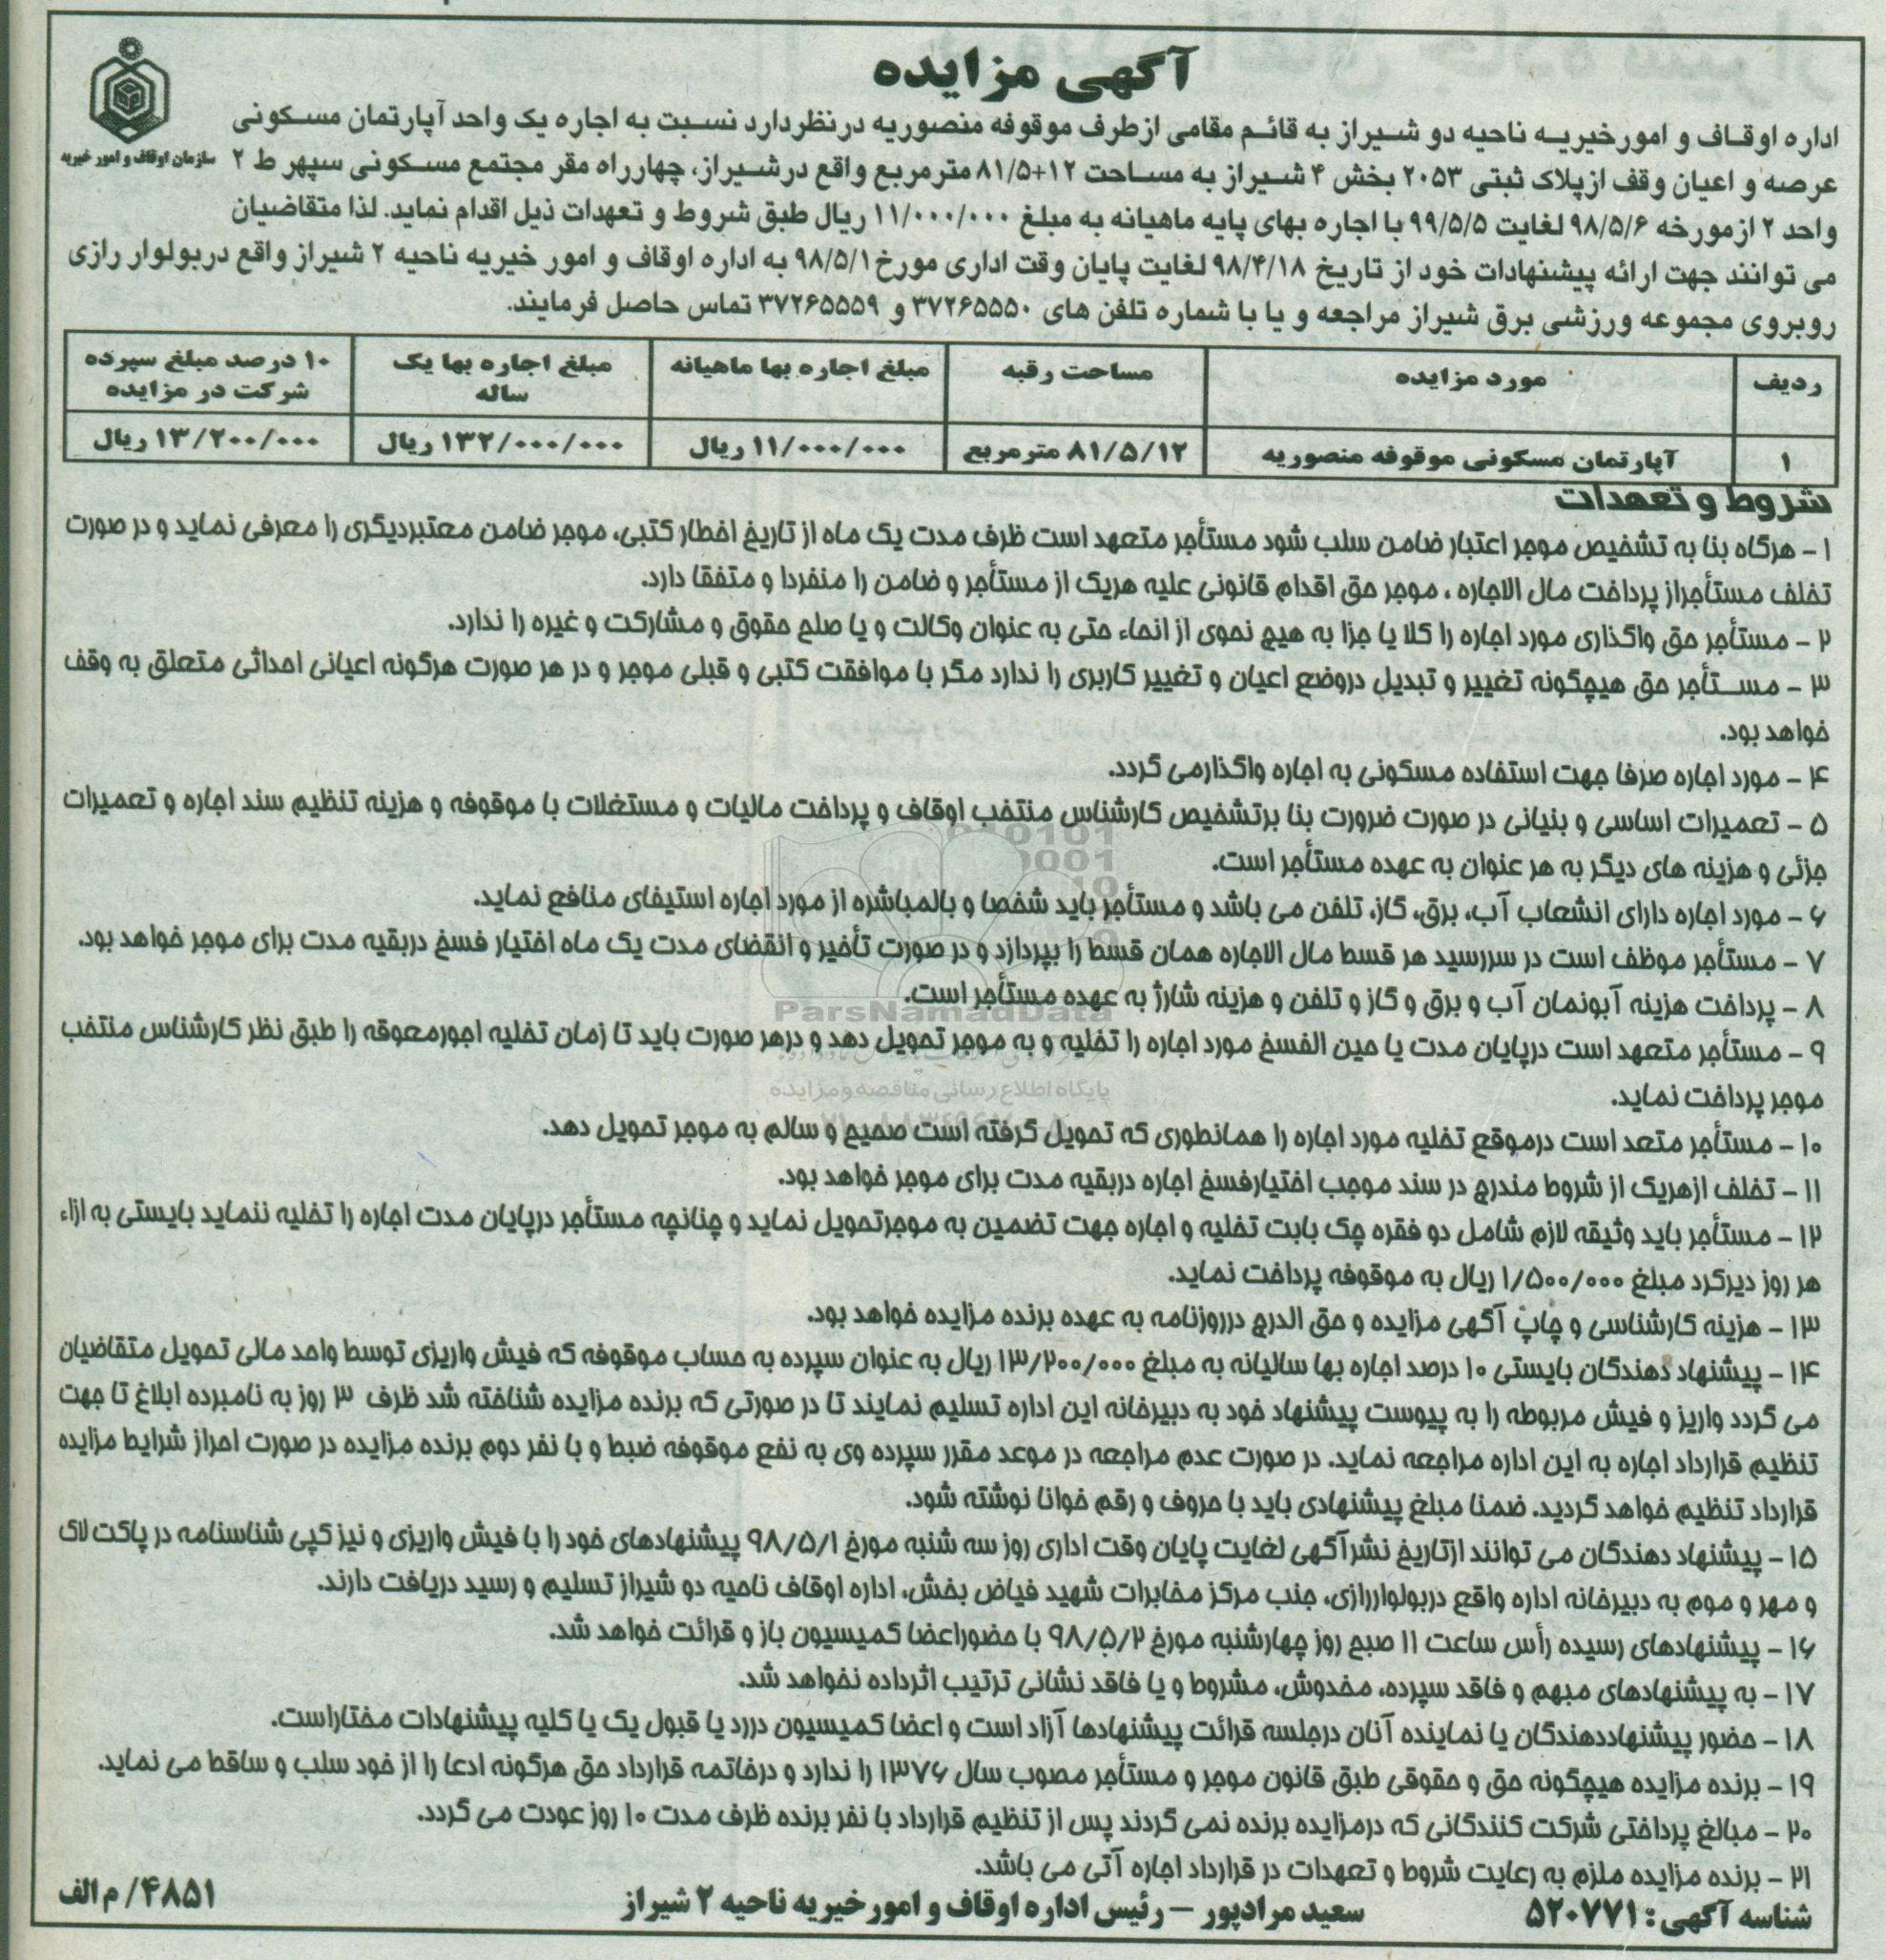 آگهی مزایده
سازمان اوقاف و امور خیریه
اداره اوقـاف و امورخیریـه ناحیه دو شـیراز به قائـم مقامی ازطرف موقوفه منصوریه درنظردارد نسـبت به اجاره یک واحد آپارتمان مسـکونی
عرصه و اعیان وقف ازپلاک ثبتی ۲۰۵۳ بخش ۴ شـیراز به مسـاحت ۱۲+۸۱/۵ مترمربع واقع درشـیراز، چهارراه مقر مجتمع مسـکونی سپهر ط ۲
واحد ۲ ازمورخه ۹۸/۵/۶ لغایت ۹۹/۵/۵ با اجاره بهای پایه ماهیانه به مبلغ ۱۱/۰۰۰/۰۰۰ ریال طبق شروط و تعهدات ذیل اقدام نماید. لذا متقاضیان
می توانند جهت ارائه پیشنهادات خود از تاریخ ۹۸/۴/۱۸ لغایت پایان وقت اداری مورخ ۹۸/۵/۱ به اداره اوقاف و امور خیریه ناحیه ۲ شیراز واقع دربولوار رازی
روبروی مجموعه ورزشی برق شیراز مراجعه و یا با شماره تلفن های ۳۷۲۶۵۵۵۰ و ۳۷۲۶۵۵۵۹ تماس حاصل فرمایند.
ردیف | مورد مزایده | مساحت رقبه | مبلغ اجاره بها ماهیانه | مبلغ اجاره بها یک ساله | ۱۰ درصد مبلغ سپرده شرکت در مزایده
۱ | آپارتمان مسکونی موقوفه منصوریه | ۸۱/۵/۱۲ مترمربع | ۱۱/۰۰۰/۰۰۰ ریال | ۱۳۲/۰۰۰/۰۰۰ ریال | ۱۳/۲۰۰/۰۰۰ ریال
شروط و تعهدات
۱ - هرگاه بنا به تشخیص موجر اعتبار ضامن سلب شود مستأجر متعهد است ظرف مدت یک ماه از تاریخ اخطار کتبی، موجر ضامن معتبردیگری را معرفی نماید و در صورت
تخلف مستأجراز پرداخت مال الاجاره ، موجر حق اقدام قانونی علیه هریک از مستأجر و ضامن را منفردا و متفقا دارد.
۲ - مستأجر حق واگذاری مورد اجاره را کلا یا جزا به هیچ نحوی از انحاء حتی به عنوان وکالت و یا صلح حقوق و مشارکت و غیره را ندارد.
۳ - مسـتأجر حق هیچگونه تغییر و تبدیل دروضع اعیان و تغییر کاربری را ندارد مگر با موافقت کتبی و قبلی موجر و در هر صورت هرگونه اعیانی احداثی متعلق به وقف
خواهد بود.
۴ - مورد اجاره صرفا جهت استفاده مسکونی به اجاره واگذارمی گردد.
۵ - تعمیرات اساسی و بنیانی در صورت ضرورت بنا برتشخیص کارشناس منتخب اوقاف و پرداخت مالیات و مستغلات با موقوفه و هزینه تنظیم سند اجاره و تعمیرات
جزئی و هزینه های دیگر به هر عنوان به عهده مستأجر است.
۶ - مورد اجاره دارای انشعاب آب، برق، گاز، تلفن می باشد و مستأجر باید شخصا و بالمباشره از مورد اجاره استیفای منافع نماید.
۷ - مستأجر موظف است در سررسید هر قسط مال الاجاره همان قسط را بپردازد و در صورت تأخیر و انقضای مدت یک ماه اختیار فسخ دربقیه مدت برای موجر خواهد بود.
۸ - پرداخت هزینه آبونمان آب و برق و گاز و تلفن و هزینه شارژ به عهده مستأجر است.
ParsNamadData
۹ - مستأجر متعهد است درپایان مدت یا حین الفسخ مورد اجاره را تخلیه و به موجر تحویل دهد و درهر صورت باید تا زمان تخلیه اجورمعوقه را طبق نظر کارشناس منتخب
موجر پرداخت نماید.
پایگاه اطلاع رسانی مناقصه و مزایده
۱۰ - مستأجر متعد است درموقع تخلیه مورد اجاره را همانطوری که تحویل گرفته است صحیح و سالم به موجر تحویل دهد.
۱۱ - تخلف ازهریک از شروط مندرج در سند موجب اختیارفسخ اجاره دربقیه مدت برای موجر خواهد بود.
۱۲ - مستأجر باید وثیقه لازم شامل دو فقره چک بابت تخلیه و اجاره جهت تضمین به موجرتحویل نماید و چنانچه مستأجر درپایان مدت اجاره را تخلیه ننماید بایستی به ازاء
هر روز دیرکرد مبلغ ۱/۵۰۰/۰۰۰ ریال به موقوفه پرداخت نماید.
۱۳ - هزینه کارشناسی و چاپ آگهی مزایده و حق الدرج درروزنامه به عهده برنده مزایده خواهد بود.
۱۴ - پیشنهاد دهندگان بایستی ۱۰ درصد اجاره بها سالیانه به مبلغ ۱۳/۲۰۰/۰۰۰ ریال به عنوان سپرده به حساب موقوفه که فیش واریزی توسط واحد مالی تحویل متقاضیان
می گردد واریز و فیش مربوطه را به پیوست پیشنهاد خود به دبیرخانه این اداره تسلیم نمایند تا در صورتی که برنده مزایده شناخته شد ظرف ۳ روز به نامبرده ابلاغ تا جهت
تنظیم قرارداد اجاره به این اداره مراجعه نماید. در صورت عدم مراجعه در موعد مقرر سپرده وی به نفع موقوفه ضبط و با نفر دوم برنده مزایده در صورت احراز شرایط مزایده
قرارداد تنظیم خواهد گردید. ضمنا مبلغ پیشنهادی باید با حروف و رقم خوانا نوشته شود.
۱۵ - پیشنهاد دهندگان می توانند ازتاریخ نشرآگهی لغایت پایان وقت اداری روز سه شنبه مورخ ۹۸/۵/۱ پیشنهادهای خود را با فیش واریزی و نیز کپی شناسنامه در پاکت لاک
و مهر و موم به دبیرخانه اداره واقع دربولواررازی، جنب مرکز مخابرات شهید فیاض بخش، اداره اوقاف ناحیه دو شیراز تسلیم و رسید دریافت دارند.
۱۶ - پیشنهادهای رسیده رأس ساعت ۱۱ صبح روز چهارشنبه مورخ ۹۸/۵/۲ با حضوراعضا کمیسیون باز و قرائت خواهد شد.
۱۷ - به پیشنهادهای مبهم و فاقد سپرده، مخدوش، مشروط و یا فاقد نشانی ترتیب اثرداده نخواهد شد.
۱۸ - حضور پیشنهاددهندگان یا نماینده آنان درجلسه قرائت پیشنهادها آزاد است و اعضا کمیسیون دررد یا قبول یک یا کلیه پیشنهادات مختاراست.
۱۹ - برنده مزایده هیچگونه حق و حقوقی طبق قانون موجر و مستأجر مصوب سال ۱۳۷۶ را ندارد و درخاتمه قرارداد حق هرگونه ادعا را از خود سلب و ساقط می نماید.
۲۰ - مبالغ پرداختی شرکت کنندگانی که درمزایده برنده نمی گردند پس از تنظیم قرارداد با نفر برنده ظرف مدت ۱۰ روز عودت می گردد.
۲۱ - برنده مزایده ملزم به رعایت شروط و تعهدات در قرارداد اجاره آتی می باشد.
شناسه آگهی: ۵۲۰۷۷۱ سعید مرادپور – رئیس اداره اوقاف و امورخیریه ناحیه ۲ شیراز ۴۸۵۱/ م الف